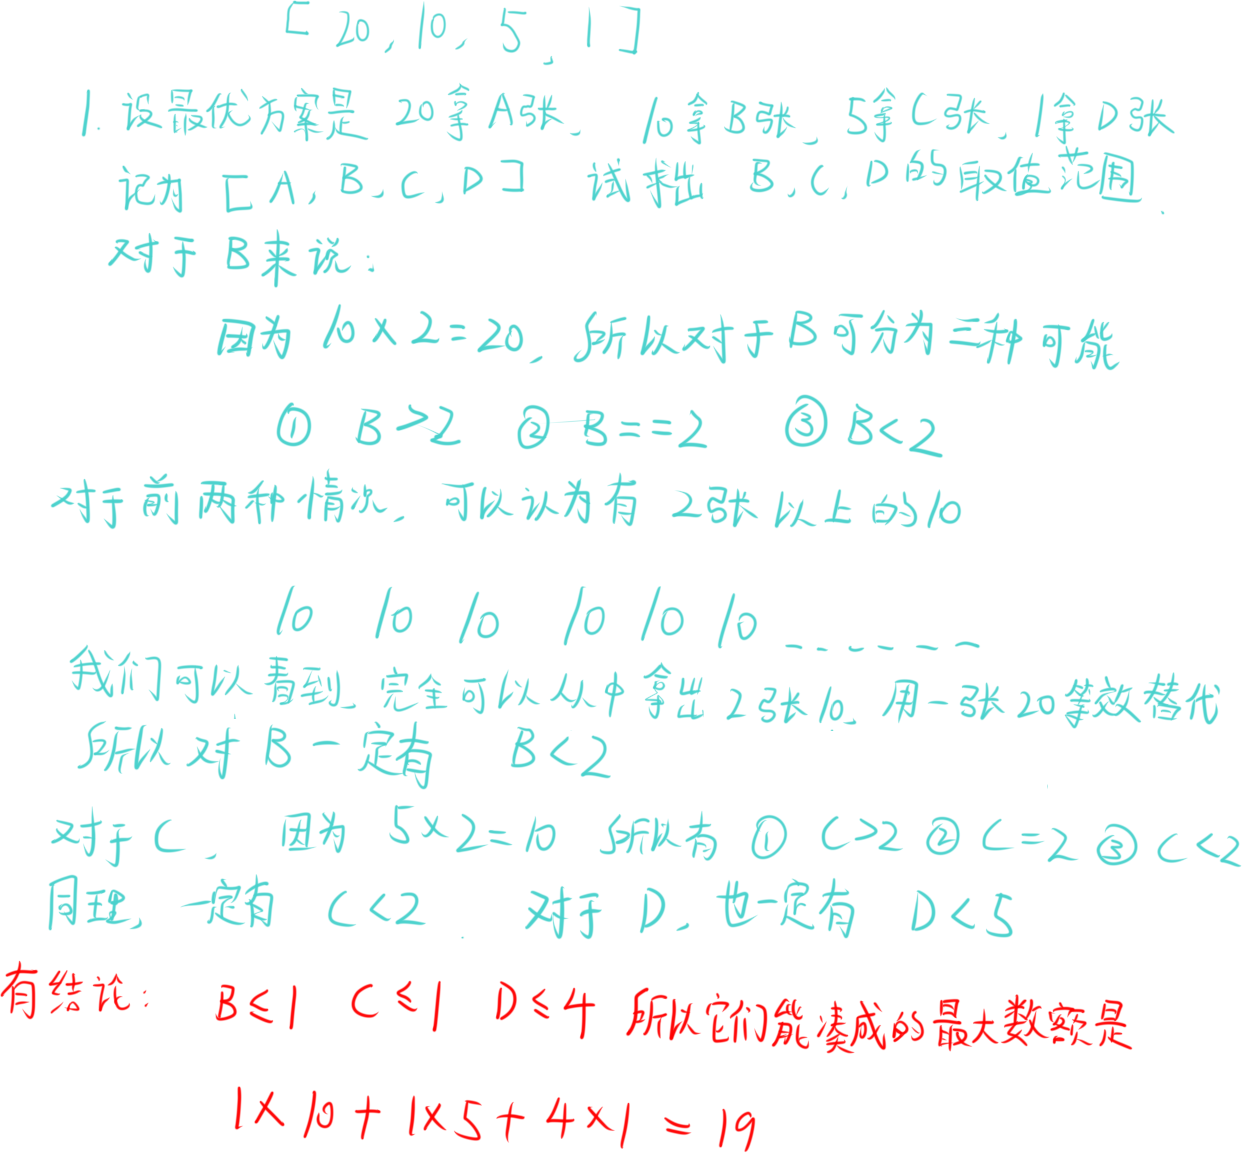 [ 20, 10, 5, 1 ]
1. 设最优方案是 20拿A张、 10拿B张、5拿C张、1拿D张
记为 [ A, B, C, D ] 试求出 B、C、D的取值范围.
对于B来说:
因为 10×2=20, 所以对于B可分为三种可能
① B>2 ② B==2 ③ B<2
对于前两种情况, 可以认为有 2张以上的10
10 10 10 10 10 10 ------
我们可以看到, 完全可以从中拿出2张10, 用一张20等效替代
所以对B一定有 B<2
对于C, 因为 5×2=10 所以有 ① C>2 ② C=2 ③ C<2
同理, 一定有 C<2. 对于D, 也一定有 D<5
有结论: B≤1 C≤1 D≤4 所以它们能凑成的最大数额是
1×10+1×5+4×1=19